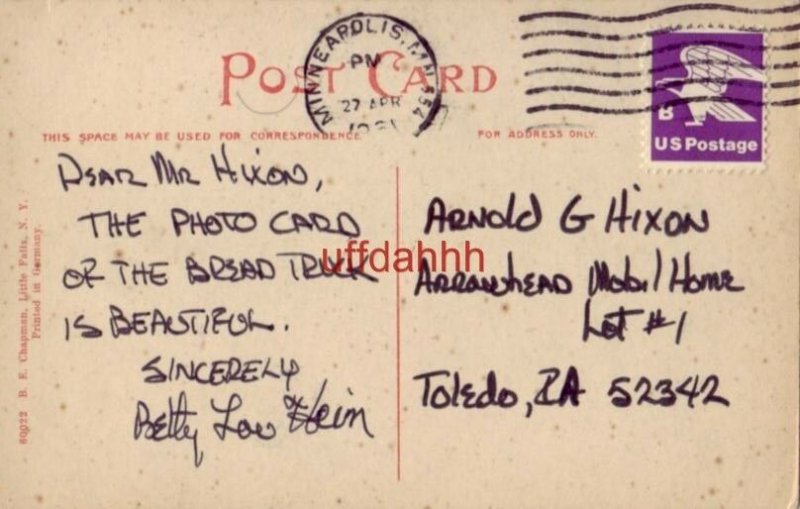 POST CARD
MINNEAPOLIS, MN 554
PM
27 APR
1981
B
US Postage
THIS SPACE MAY BE USED FOR CORRESPONDENCE
FOR ADDRESS ONLY.
DEAR MR HIXON,
THE PHOTO CARD
OF THE BREAD TRUCK
IS BEAUTIFUL.
SINCERELY
Betty Lou
ARNOLD G HIXON
ARROWHEAD Mobil Home
Lot #1
Toledo, IA 52342
uffdahhh
60022 B. E. Chapman, Little Falls, N. Y.
Printed in Germany.